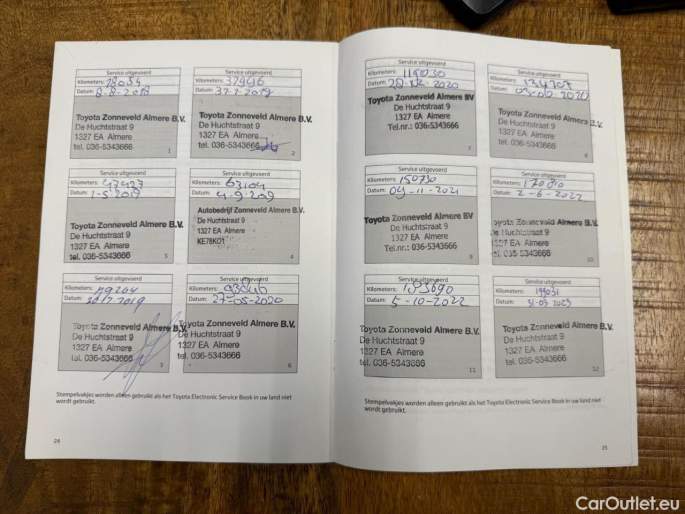 Service uitgevoerd
Kilometers: 18084
Datum: 8-8-2018
Toyota Zonneveld Almere B.V.
De Huchtstraat 9
1327 EA Almere
tel. 036-5343666
1
Service uitgevoerd
Kilometers: 37996
Datum:
Toyota Zonneveld Almere B.V.
De Huchtstraat 9
1327 EA Almere
tel. 036-5343666
2
Service uitgevoerd
Kilometers: 47427
Datum: 1-5-2019
Toyota Zonneveld Almere B.V.
De Huchtstraat 9
1327 EA Almere
tel. 036-5343666
3
Service uitgevoerd
Kilometers: 63104
Datum: 4-9-2019
Autobedrijf Zonneveld Almere B.V.
De Huchtstraat 9
1327 EA Almere
KE78K01
4
Service uitgevoerd
Kilometers: 79264
Datum:
Toyota Zonneveld Almere B.V.
De Huchtstraat 9
1327 EA Almere
tel. 036-5343666
5
Service uitgevoerd
Kilometers:
Datum: 27-05-2020
Toyota Zonneveld Almere B.V.
De Huchtstraat 9
1327 EA Almere
tel. 036-5343666
6
Stempelvakjes worden alleen gebruikt als het Toyota Electronic Service Book in uw land niet
wordt gebruikt.
24
Service uitgevoerd
Kilometers:
Datum:
Toyota Zonneveld Almere BV
De Huchtstraat 9
1327 EA Almere
Tel.nr.: 036-5343666
7
Service uitgevoerd
Kilometers:
Datum:
Toyota Zonneveld Almere B.V.
De Huchtstraat 9
1327 EA Almere
tel. 036-5343666
8
Service uitgevoerd
Kilometers: 150730
Datum: 09-11-2021
Toyota Zonneveld Almere BV
De Huchtstraat 9
1327 EA Almere
Tel.nr.: 036-5343666
9
Service uitgevoerd
Kilometers:
Datum: 2-6-2022
Toyota Zonneveld Almere B.V.
De Huchtstraat 9
1327 EA Almere
tel. 036-5343666
10
Service uitgevoerd
Kilometers: 183690
Datum: 5-10-2022
Toyota Zonneveld Almere B.V.
De Huchtstraat 9
1327 EA Almere
tel. 036-5343666
11
Service uitgevoerd
Kilometers: 199031
Datum: 31-03-2023
Toyota Zonneveld Almere B.V.
De Huchtstraat 9
1327 EA Almere
tel. 036-5343666
12
Stempelvakjes worden alleen gebruikt als het Toyota Electronic Service Book in uw land niet
wordt gebruikt.
25
CarOutlet.eu